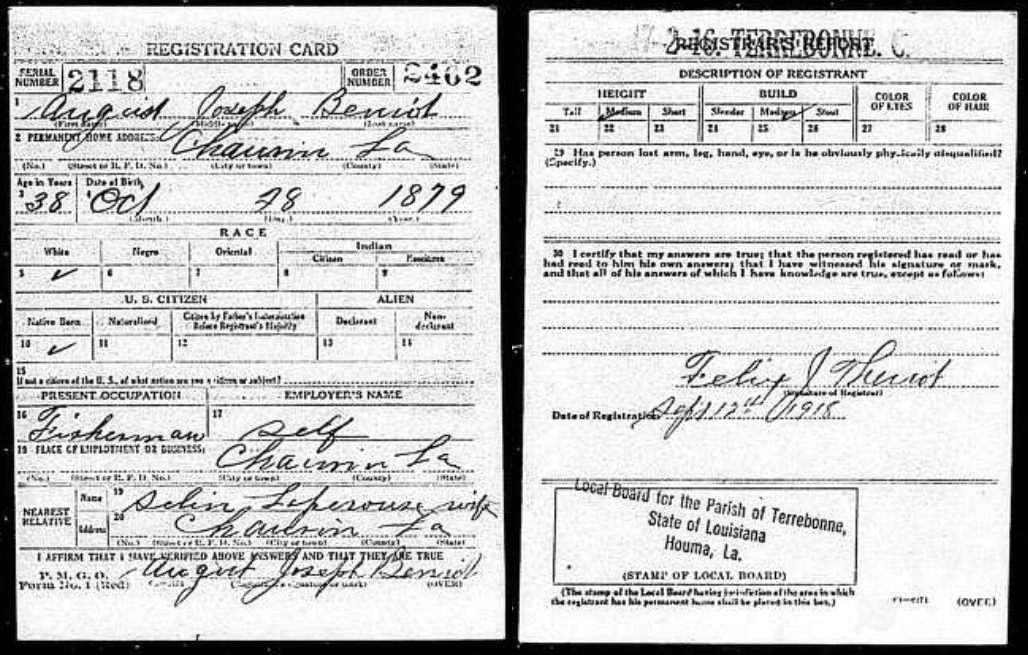 REGISTRATION CARD
SERIAL NUMBER 2118 ORDER NUMBER 2462
1 August Joseph Beniot
(First name) (Middle name) (Last name)
2 PERMANENT HOME ADDRESS:
Chauvin La
(No.) (Street or R. F. D. No.) (City or town) (County) (State)
Age in Years Date of Birth
3 38 4 Oct 28 1879
(Month.) (Day.) (Year.)
RACE
White Negro Oriental Indian
Citizen Noncitizen
5 ✓ 6 7 8 9
U. S. CITIZEN ALIEN
Native Born Naturalized Citizen by Father's Naturalization Before Registrant's Majority Declarant Non-declarant
10 ✓ 11 12 13 14
15
If not a citizen of the U. S., of what nation are you a citizen or subject?
PRESENT OCCUPATION EMPLOYER'S NAME
16 Fisherman 17 self
18 PLACE OF EMPLOYMENT OR BUSINESS:
Chauvin La
(No.) (Street or R. F. D. No.) (City or town) (County) (State)
NEAREST RELATIVE
Name 19 Selin Leperouse wife
Address 20 Chauvin La
(No.) (Street or R. F. D. No.) (City or town) (County) (State)
I AFFIRM THAT I HAVE VERIFIED ABOVE ANSWERS AND THAT THEY ARE TRUE
P. M. G. O.
Form No. 1 (Red) August Joseph Beniot
(Registrant's signature or mark) (OVER)
17-2-16. TERREBONNE. C.
REGISTRAR'S REPORT
DESCRIPTION OF REGISTRANT
HEIGHT BUILD COLOR OF EYES COLOR OF HAIR
Tall Medium Short Slender Medium Stout
21 22 23 24 25 26 27 28
29 Has person lost arm, leg, hand, eye, or is he obviously physically disqualified?
(Specify.)
30 I certify that my answers are true; that the person registered has read or has
had read to him his own answers; that I have witnessed his signature or mark,
and that all of his answers of which I have knowledge are true, except as follows:
Felix J Theriot
(Signature of Registrar)
Date of Registration Sept 12th 1918
Local Board for the Parish of Terrebonne,
State of Louisiana
Houma, La.
(STAMP OF LOCAL BOARD)
(The stamp of the Local Board having jurisdiction of the area in which
the registrant has his permanent home shall be placed in this box.)
(OVER)